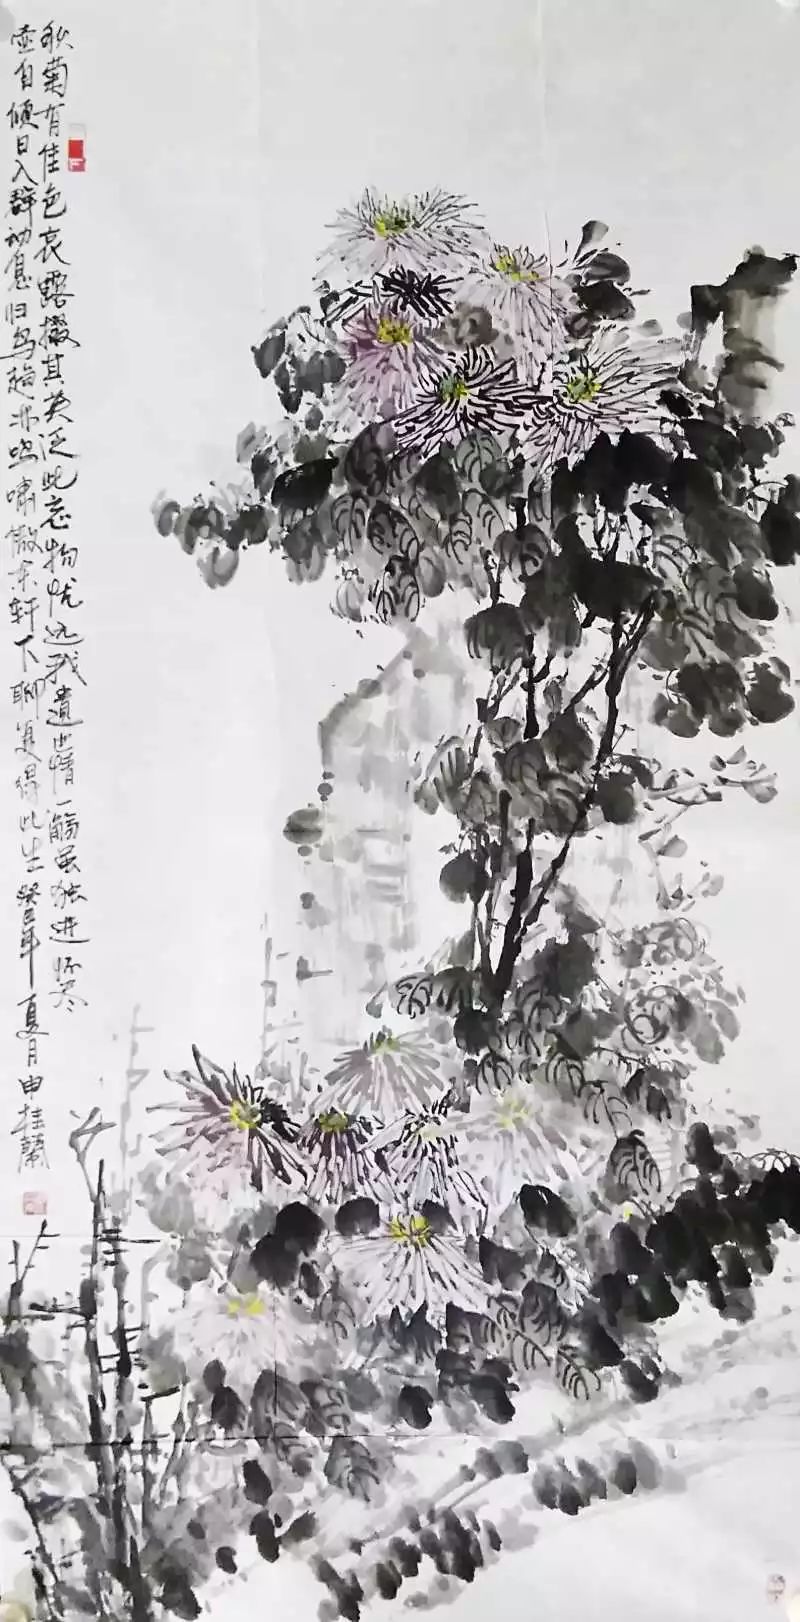 秋菊有佳色裛露掇其英泛此忘物忧远我遗世情一觞虽独进杯尽
壶自倾日入群动息归鸟趋林鸣啸傲东轩下聊复得此生癸巳年夏月申桂兰